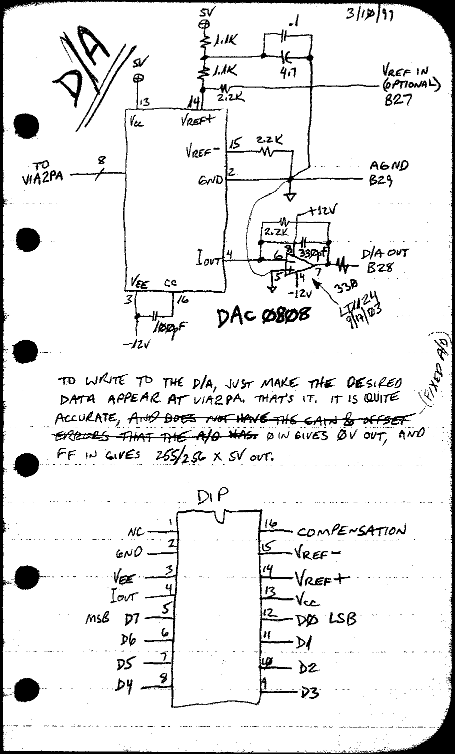 3/10/97
D/A
5V
.1
1.1K
4.7
5V
1.1K
2.2K
VREF IN
(OPTIONAL)
B27
13
14
VCC
VREF+
TO
VIA2PA
8
VREF-
15
2.2K
GND
2
AGND
B29
+12V
2.2K
330pF
IOUT
4
6
8
5
4
7
D/A OUT
B28
330
-12V
VEE
CC
3
16
100pF
-12V
DAC0808
LT1124
9/17/03
TO WRITE TO THE D/A, JUST MAKE THE DESIRED
DATA APPEAR AT VIA2PA. THAT'S IT. IT IS QUITE
ACCURATE, AND DOES NOT HAVE THE GAIN & OFFSET
ERRORS THAT THE A/D HAS. 0 IN GIVES 0V OUT, AND
FF IN GIVES 255/256 X 5V OUT.
(FIXED A/D)
DIP
NC 1
16 COMPENSATION
GND 2
15 VREF-
VEE 3
14 VREF+
IOUT 4
13 VCC
MSB D7 5
12 D0 LSB
D6 6
11 D1
D5 7
10 D2
D4 8
9 D3